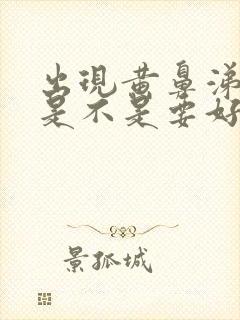 出現黃鼻涕
是不是要好
景孤城